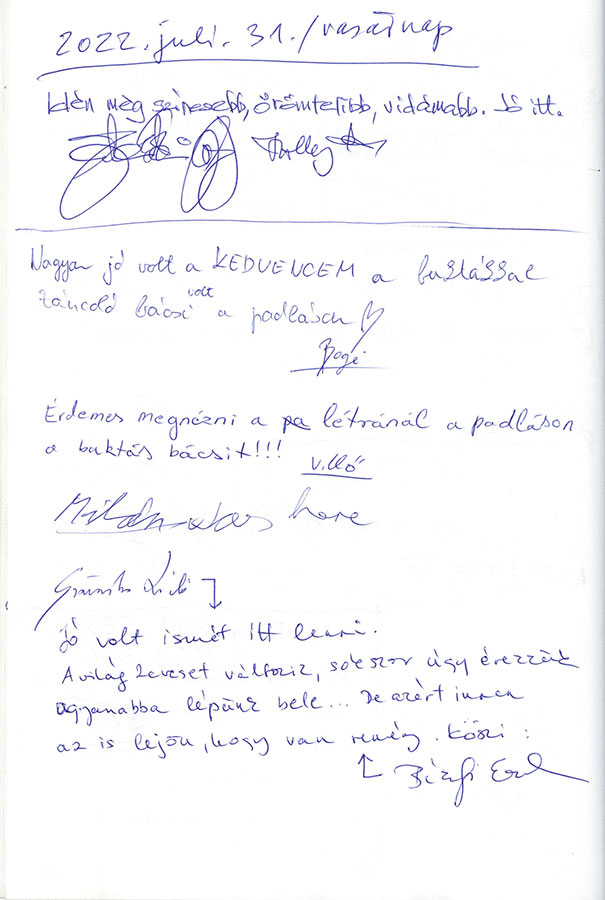 2022. juli. 31. / vasárnap
Idén még színesebb, örömtelibb, vidámabb. Jó itt.
Nagyon jó volt a KEDVENCEM a
táncoló bácsi volt a padláson
Bogi
Érdemes megnézni a pa létránál a padláson
a baktás bácsit!!!
Villő
Milán was here
Lili
Jó volt ismét itt lenni.
A világ keveset változik, sokszor úgy érezzük
ugyanabba lépünk bele... De azért innen
az is lejön, hogy van remény. Köszi :